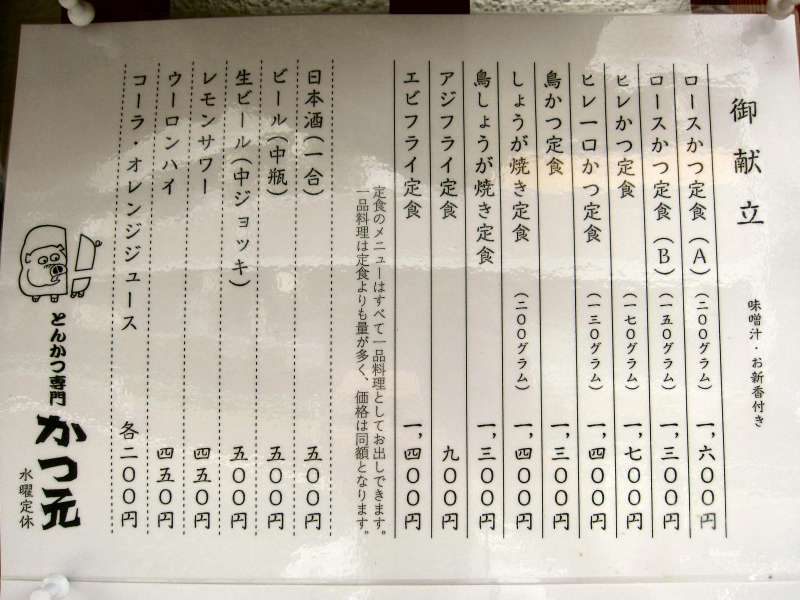 御献立
味噌汁・お新香付き
ロースかつ定食(A)(二〇〇グラム)一,六〇〇円
ロースかつ定食(B)(一五〇グラム)一,三〇〇円
ヒレかつ定食(一七〇グラム)一,七〇〇円
ヒレ一口かつ定食(一三〇グラム)一,四〇〇円
鳥かつ定食 一,三〇〇円
しょうが焼き定食(二〇〇グラム)一,四〇〇円
鳥しょうが焼き定食 一,三〇〇円
アジフライ定食 九〇〇円
エビフライ定食 一,四〇〇円
定食のメニューはすべて一品料理としてお出しできます。
一品料理は定食よりも量が多く、価格は同額となります。
日本酒(一合)五〇〇円
ビール(中瓶)五〇〇円
生ビール(中ジョッキ)五〇〇円
レモンサワー 四五〇円
ウーロンハイ 四五〇円
コーラ・オレンジジュース 各二〇〇円
とんかつ専門
かつ元
水曜定休